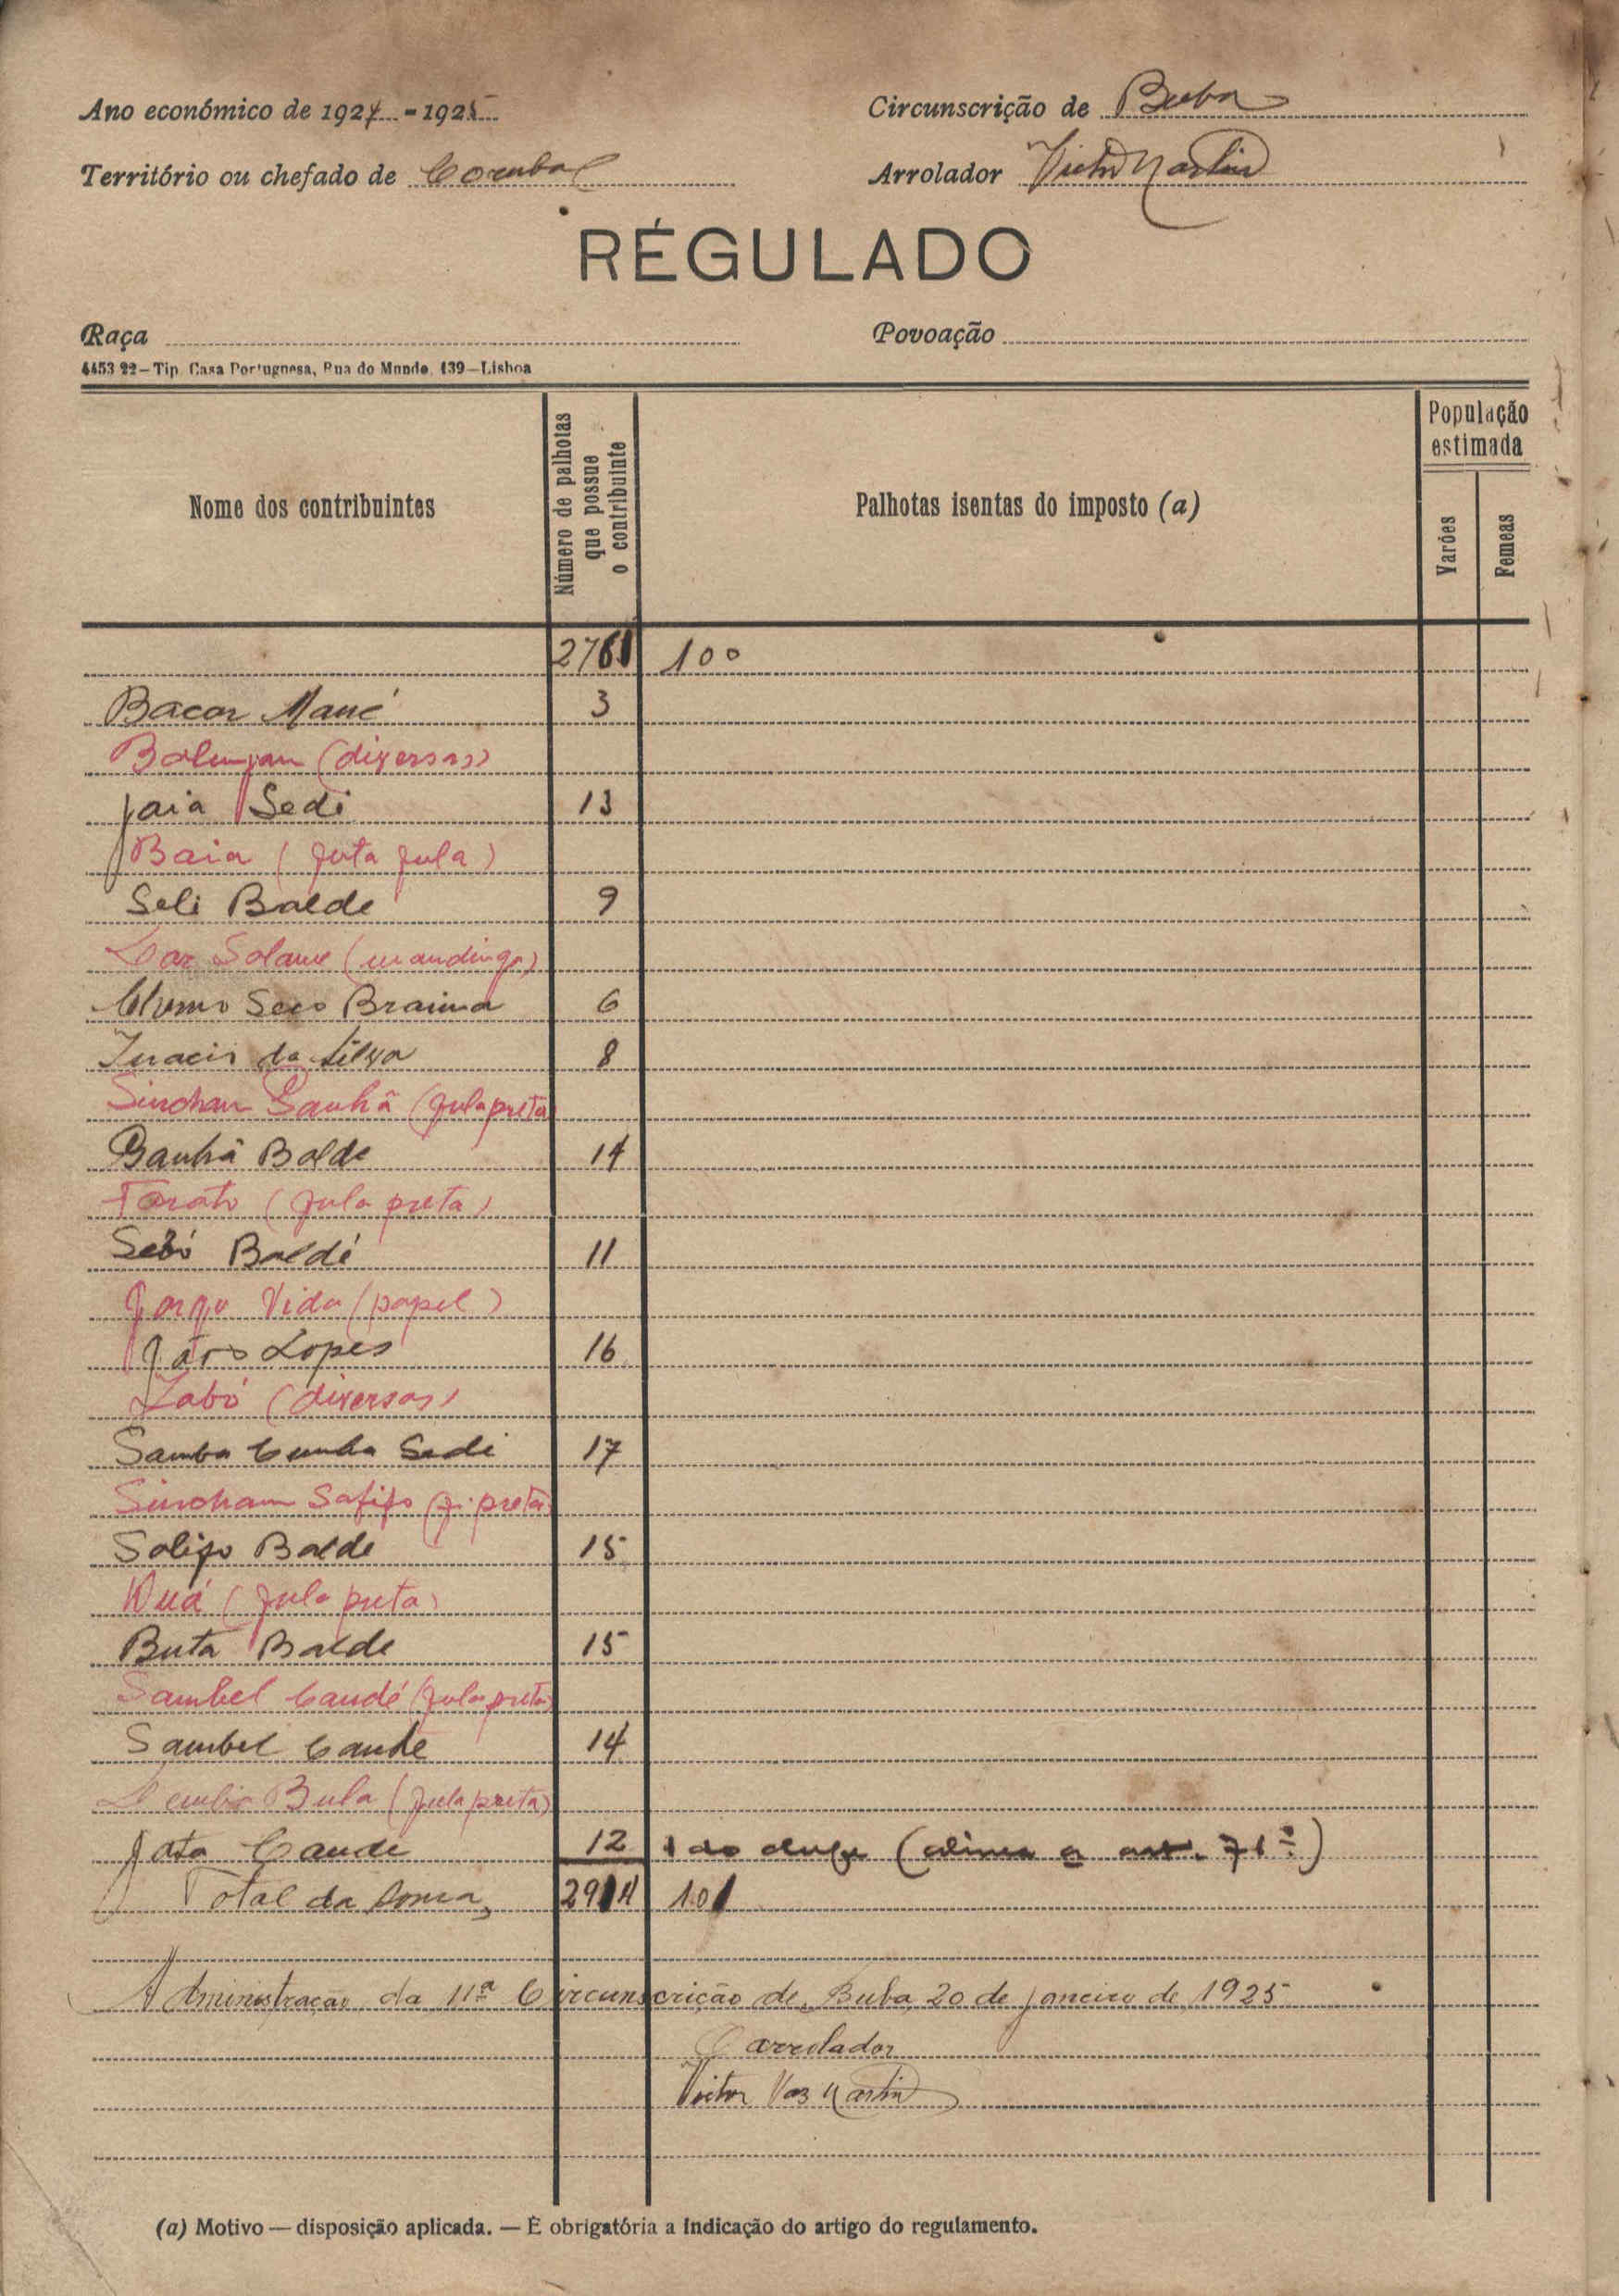 Ano económico de 1924 - 1925
Circunscrição de Buba
Território ou chefado de Corubal
Arrolador Victor Martins
RÉGULADO
Raça
Povoação
4453 22 — Tip. Casa Portuguesa, Rua do Mundo, 139 — Lisboa
Nome dos contribuintes
Número de palhotas que possue o contribuinte
Palhotas isentas do imposto (a)
População estimada
Varões
Femeas
2761 100
Bacar Mané 3
(diversas)
Jaia Sedi 13
Baia (futa fula)
Seli Balde 9
(mandinga)
Seco Braima 6
da Silva 8
Sinchan Ganhã (fula preta)
Ganhã Balde 14
(fula preta)
Baldé 11
Vida (papel)
Lopes 16
(diversos)
Samba Cumba Sedi 17
Sincham Salifo (f. preta)
Salifo Balde 15
(fula preta)
Buta Balde 15
Sambel Candé (fula preta)
Sambel Cande 14
Bula (fula preta)
Cande 12 1 do chefe (alinea a art. 71º)
Total da soma 2914 101
Administração da 11ª Circunscrição de Buba 20 de Janeiro de 1925
O arrolador
Victor Vaz Martins
(a) Motivo — disposição aplicada. — É obrigatória a indicação do artigo do regulamento.